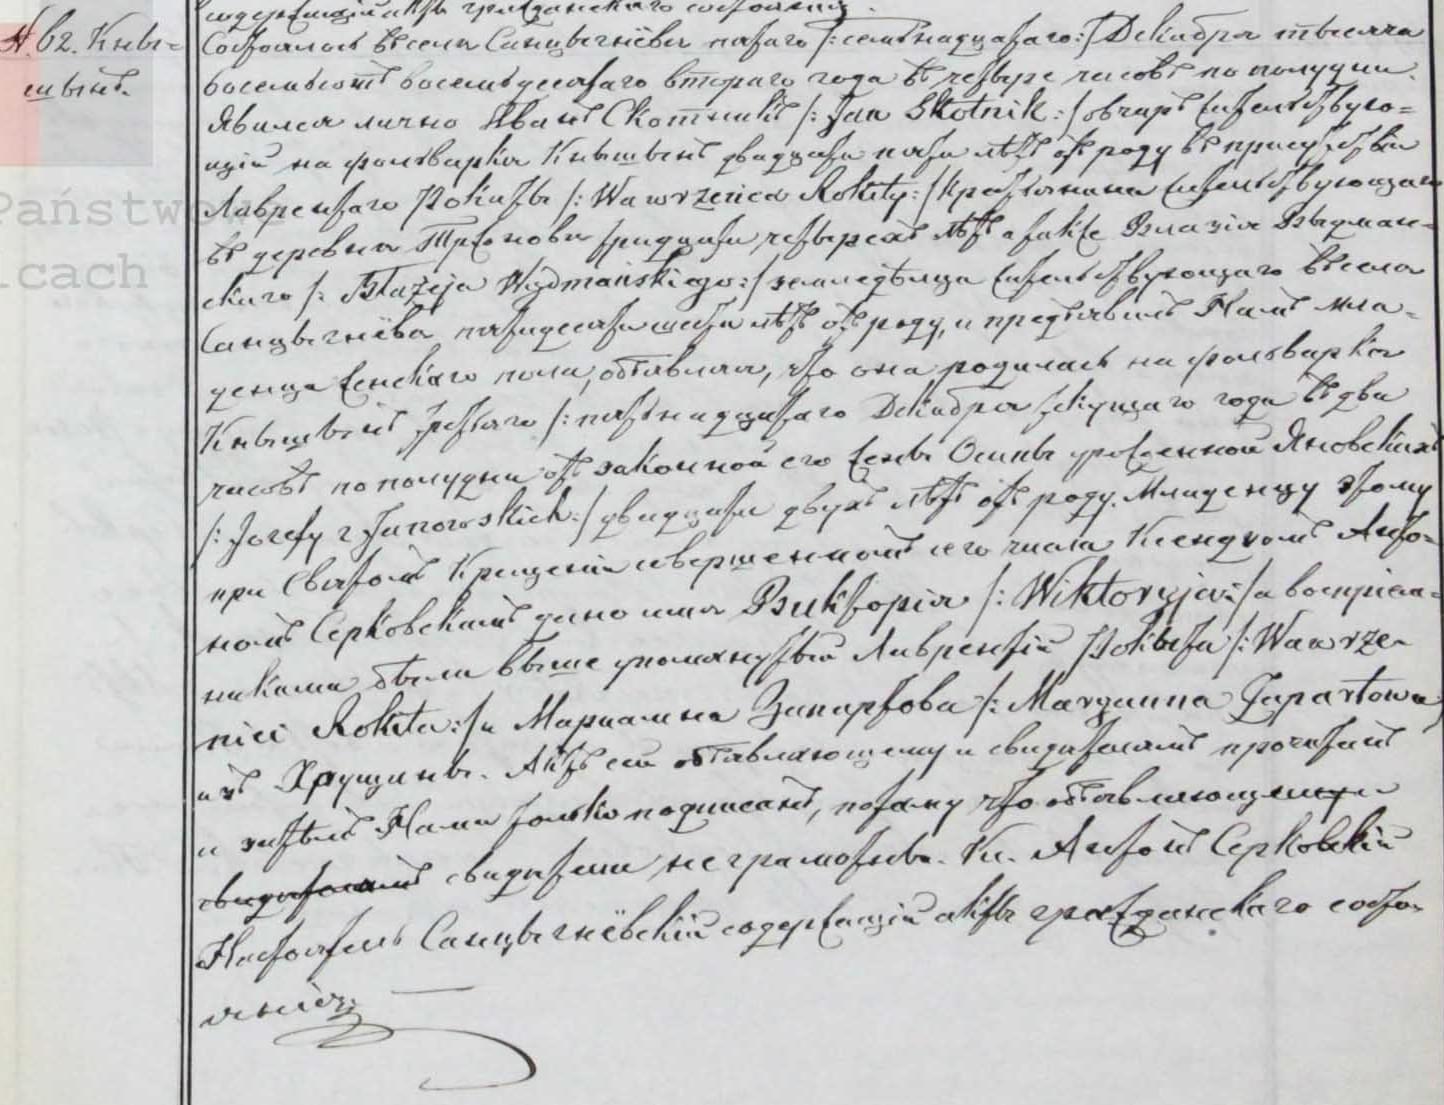 содержащій акты гражданскаго состоянія.
N. 62. Кны-
шынъ.
Состоялось въ селѣ Санцыгнёвѣ пятаго /:семнадцатаго:/ Декабря тысяча
восемьсотъ восемьдесятаго втораго года въ четыре часовъ по полудни.
Явился лично Иванъ Скотникъ /: Jan Skotnik :/ овчаръ жительствую=
щій на фольваркѣ Кнышынъ двадцати пяти лѣтъ отъ роду въ присутствіи
Лаврентаго Рокиты /: Wawrzeńca Rokity :/ крестьянина жительствующаго
въ деревнѣ тридцати четырехъ лѣтъ а также Влазія Выдман=
скаго /: Błażeja Wydmańskiego :/ земледѣльца жительствующаго въ селѣ
Санцыгнёвѣ пятидесяти шести лѣтъ отъ роду, и предъявилъ Намъ мла=
денца женскаго пола, объявляя, что она родилась на фольваркѣ
Кнышынъ третяго /: пятнадцатаго Декабря текущаго года въ два
часовъ по полудни отъ законной его жены Осипы урожденной Яновскихъ
/: Jozefy z Janowskich :/ двадцати двухъ лѣтъ отъ роду. Младенцу этому
при Святомъ Крещеніи совершенномъ сего числа Ксендзомъ Анто=
номъ Серковскимъ дано имя Викторія /: Wiktoryja :/ а воспріем=
никами были выше упомянутый Лаврентій Рокита /: Wawrze=
niec Rokita :/ и Марианна Запартова /: Maryanna Zapartowa
изъ Хрущины. Актъ сей объявляющему и свидетелямъ прочитанъ
и затѣмъ Нами только подписанъ, потому что объявляющий и
свидетели неграмотны. Кс. Антонъ Серковскій
Настоятель Санцыгнёвскій содержащій акты гражданскаго состо-
янія.
Państwow
icach